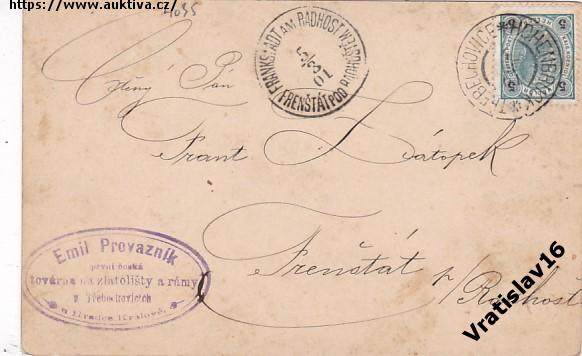 https://www.auktiva.cz/
FRANKSTADT AM RADHOST
FRENŠTÁT POD RADHOŠTĚM
5/3
01
TŘEBECHOVICE
5 5
5 5
Ctěný Pán
Frant Zátopek
Frenštát p/Radhost
Emil Provazník
první česká
továrna na zlatolišty a rámy
v Třebechovicích
u Hradce Králové.
Vratislav16